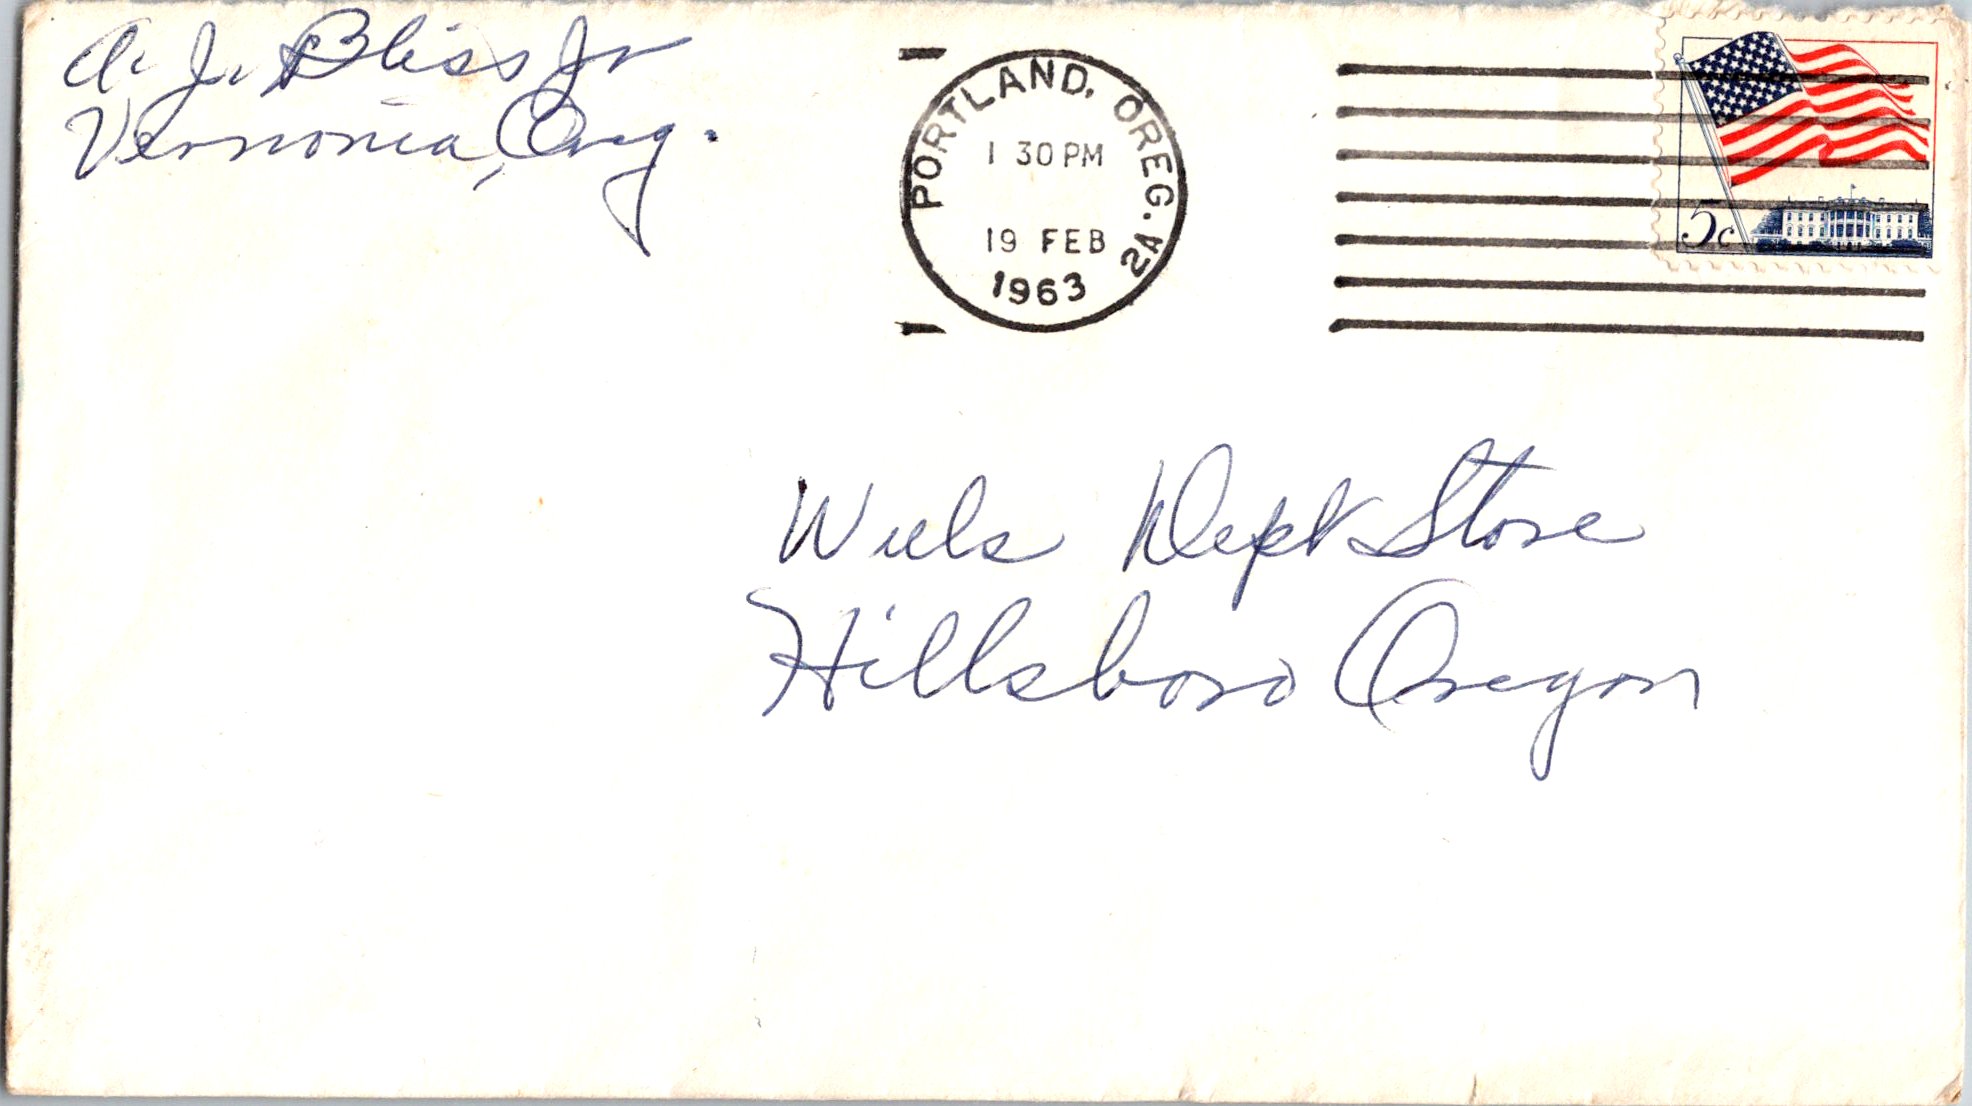 A. J. Bliss Jr
Vernonia, Oreg.
PORTLAND, OREG. 2A
1 30 PM
19 FEB
1963
5c
Weils Dept Store
Hillsboro Oregon